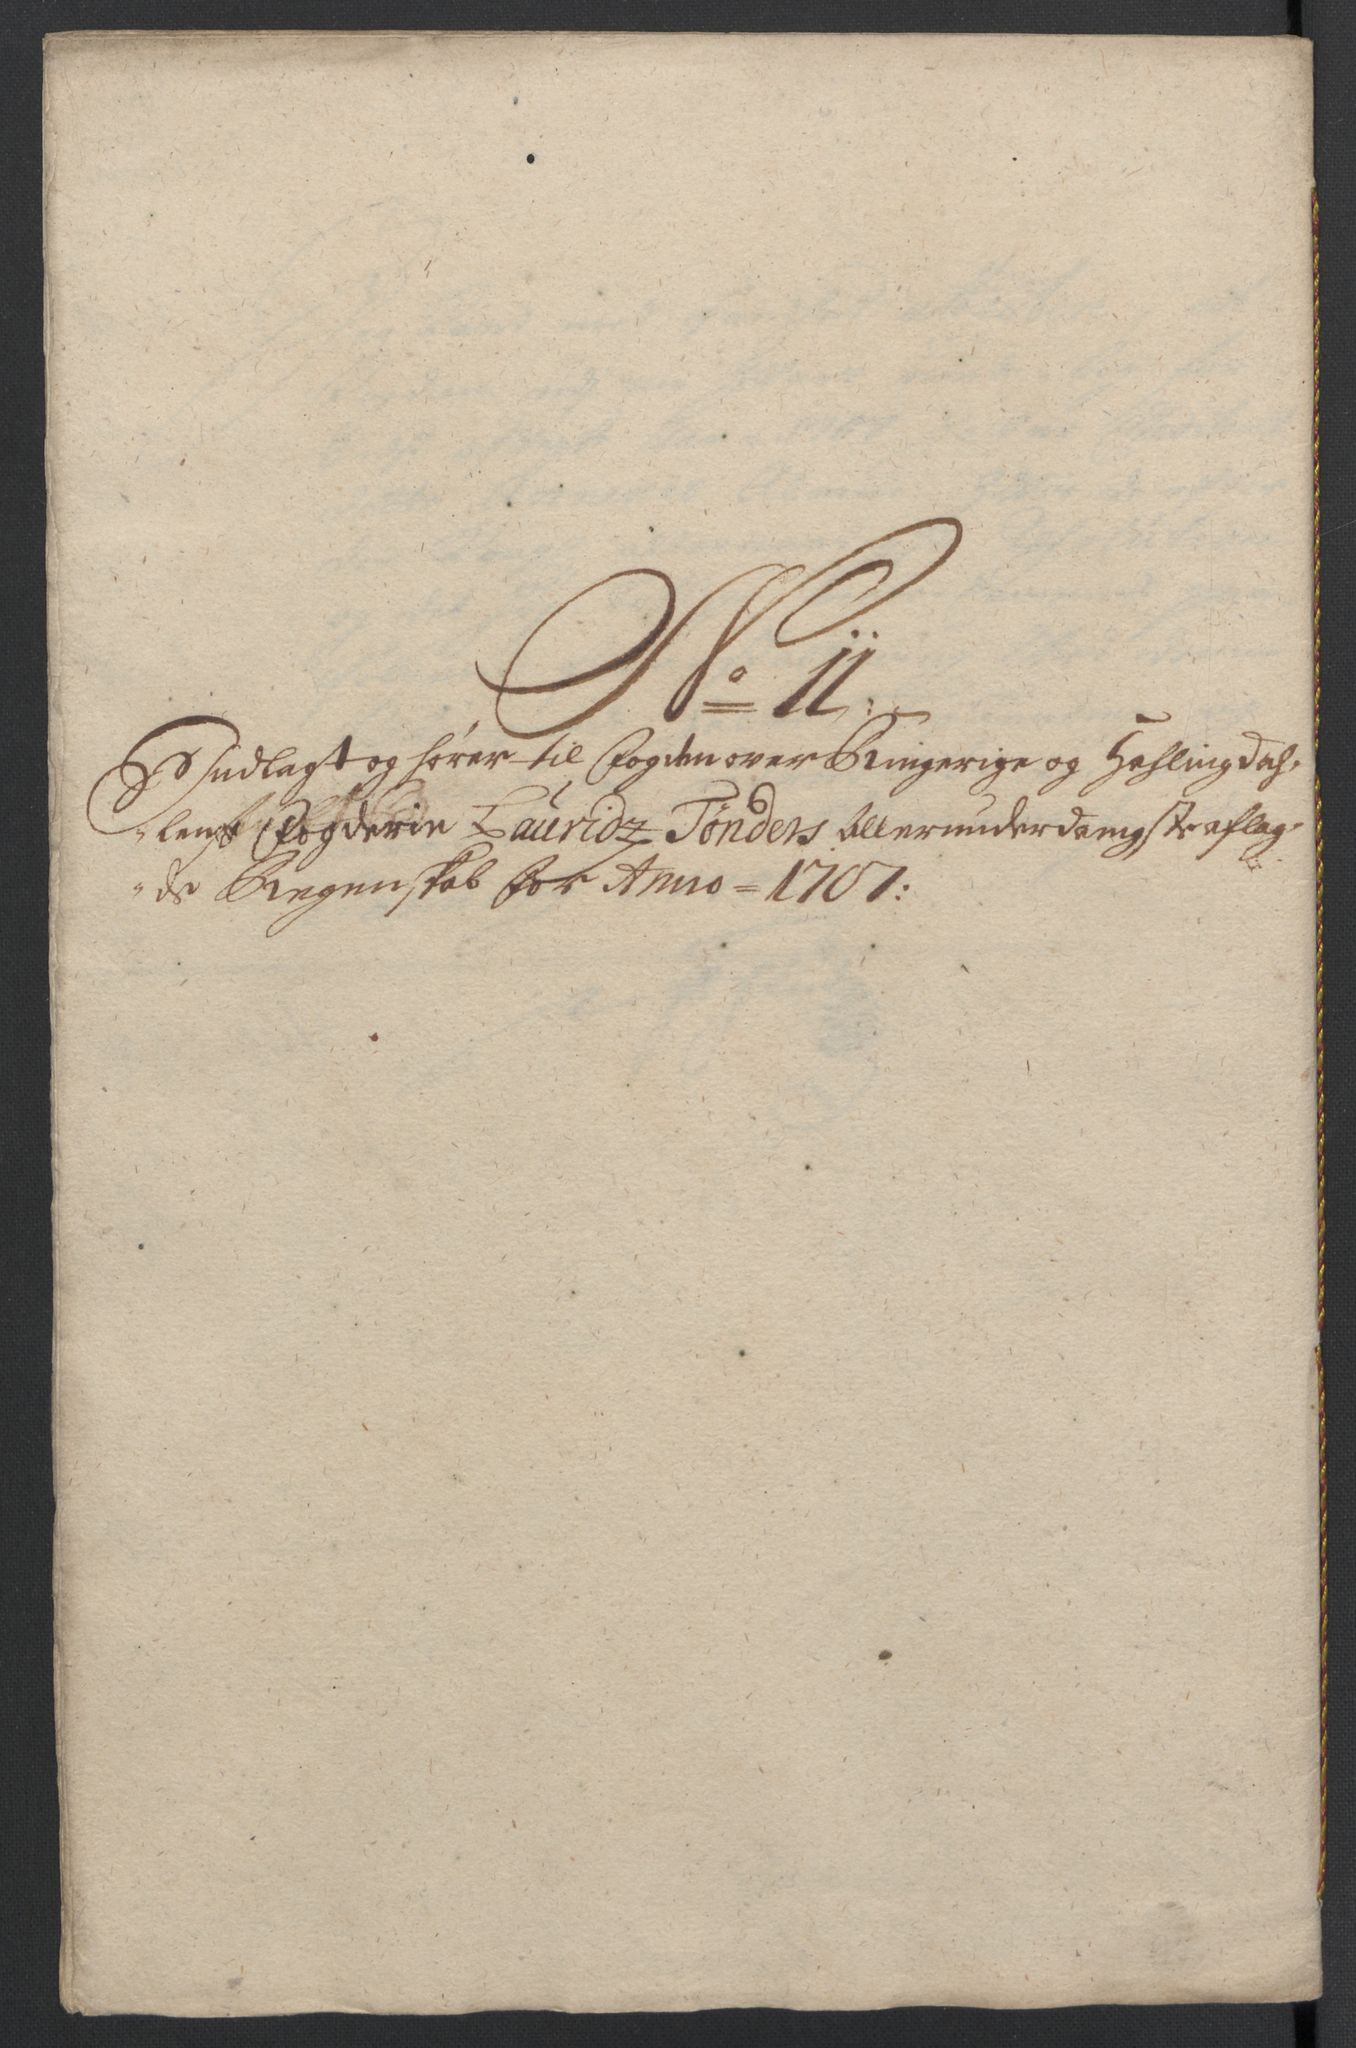 No 11:
Indlagt og hører til fogden over Ringerige og Hahlingdah-
lens fogderie Lauridz Tønders allerunderdanigste aflag-
de Regenskab for Anno = 1707: